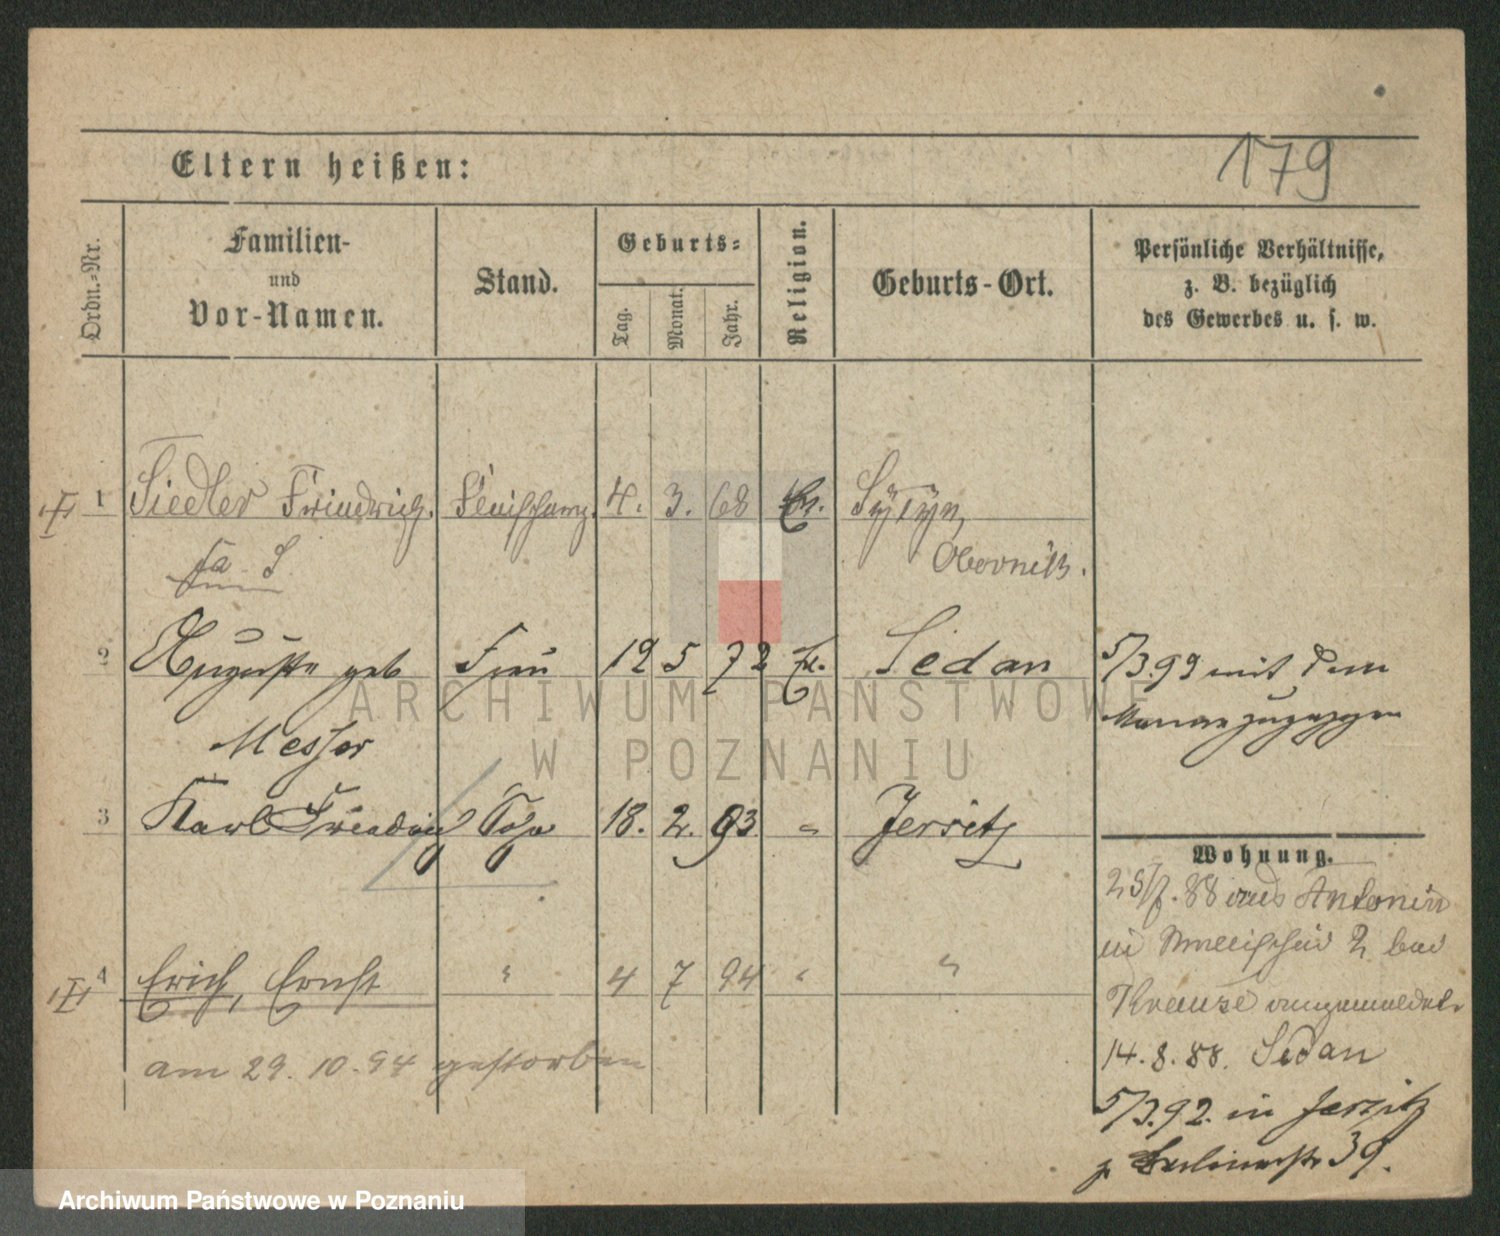 179
Eltern heißen:
Ordn.-Nr.
Familien-
und
Vor-Namen.
Stand.
Geburts-
Tag.
Monat.
Jahr.
Religion.
Geburts-Ort.
Persönliche Verhältnisse,
z. B. bezüglich
des Gewerbes u. s. w.
1 Siedler Friedrich. 4. 3. 68
Obornik.
2 Auguste geb Frau 12 5 72 Sedan
Messer
5/3.92 mit dem
Manne zugezogen
3 Karl Friedrich 18. 2. 93 " Jersitz
Wohnung.
88 aus Antonin
in 2 bei
Krause angemeldet.
14.8.88. Sedan
5/3.92. in Jersitz
Berlinerstr 39.
4 Erich, Ernst " 4 7 94 " "
am 29.10.94 gestorben
ARCHIWUM PAŃSTWOWE
W POZNANIU
Archiwum Państwowe w Poznaniu